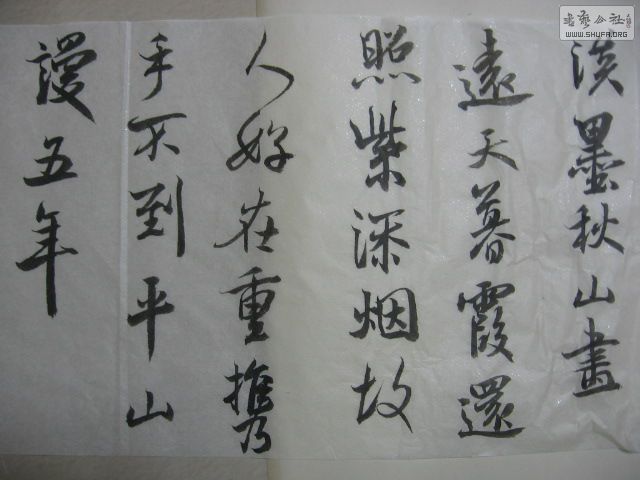 淡墨秋山畫
遠天暮霞還
照紫添烟故
人好在重携
手不到平山
謾五年
書藝公社
WWW.SHUFA.ORG